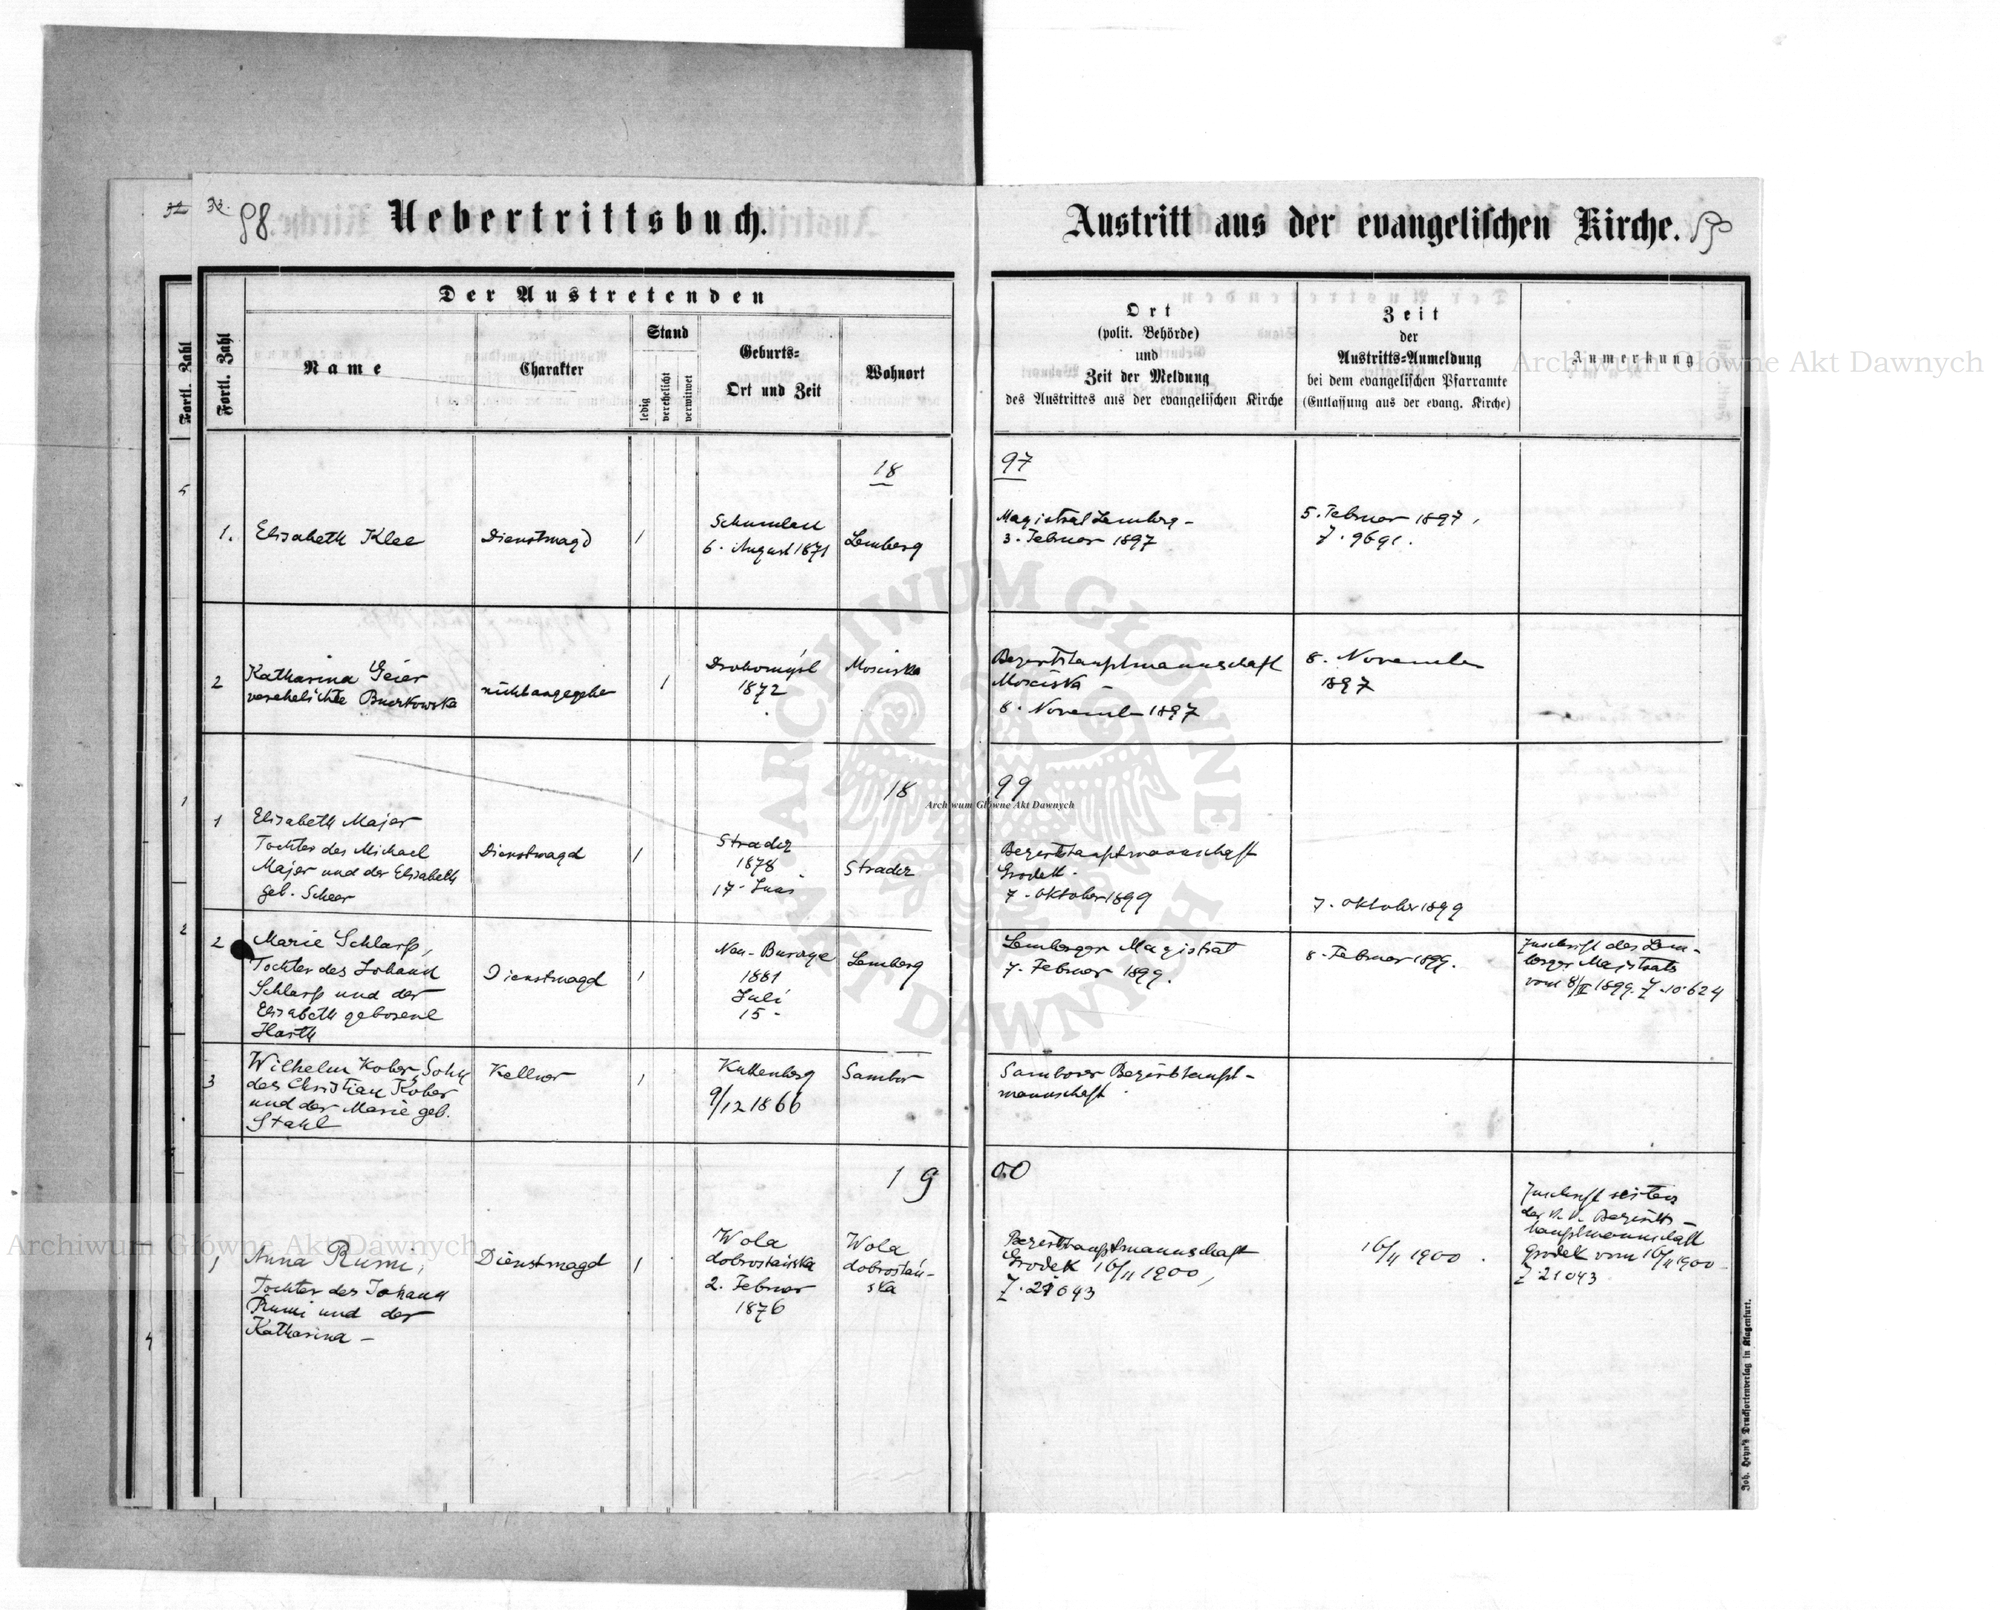 32 32. 98
Uebertrittsbuch.
Austritt aus der evangelischen Kirche.
Der Austretenden
Fortl. Zahl
Fortl. Zahl
Name
Charakter
Stand
ledig
verehelicht
verwitwet
Geburts-
Ort und Zeit
Wohnort
Ort
(polit. Behörde)
und
Zeit der Meldung
des Austrittes aus der evangelischen Kirche
Zeit
der
Austritts-Anmeldung
bei dem evangelischen Pfarramte
(Entlassung aus der evang. Kirche)
Anmerkung
18 97
1. Elisabeth Klee
Dienstmagd
1
6. August 1871
Lemberg
Magistrat Lemberg -
3. Februar 1897
5. Februar 1897,
Z. 9691.
2
Katharina Geier
verehelichte
1
Drohomysl
1872
Mosciska
Bezirkshauptmannschaft
Mosciska -
8. November 1897
8. November
1897
18 99
1
Elisabeth Majer
Tochter des Michael
Majer und der Elisabeth
geb. Scheer
Dienstmagd
1
Stradcz
1878
17.
Stradcz
Bezirkshauptmannschaft
Grodek.
7. Oktober 1899
7. Oktober 1899
2
Marie Schlarp,
Tochter des Johann
Schlarp und der
Elisabeth geborene
Harth
Dienstmagd
1
Neu-
1881
Juli
15 -
Lemberg
Lemberger Magistrat
7. Februar 1899.
8. Februar 1899.
Zuschrift des Lem-
berger Magistrats
vom 8/II 1899. Z. 10624
3
Wilhelm Kober, Sohn
des Christian Kober
und der Marie geb.
Stahl
Kellner
1
Kuttenberg
9/12 1866
Sambor
Samborer Bezirkshaupt-
mannschaft
19 00
1
Anna Rumi,
Tochter des Johann
Rumi und der
Katharina -
Dienstmagd
1
Wola
dobrostańska
2. Februar
1876
Wola
dobrostań-
ska
Bezirkshauptmannschaft
Grodek 16/II 1900,
Z. 21043
16/II 1900.
Zuschrift seitens
der k. k. Bezirks-
hauptmannschaft
Grodek vom 16/II 1900
Z. 21043
Joh. Heyn's Drucksortenverlag in Klagenfurt.
Archiwum Główne Akt Dawnych
Archiwum Główne Akt Dawnych
Archiwum Główne Akt Dawnych
ARCHIWUM GŁÓWNE AKT DAWNYCH